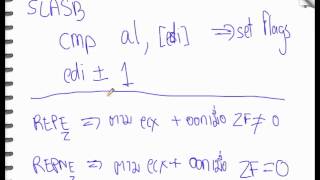 SCASB
cmp al, [edi] ⇒ set flags
edi ± 1
REPE ⇒ ตาม ecx + ออกเมื่อ ZF ≠ 0
Z
REPNE ⇒ ตาม ecx + ออกเมื่อ ZF = 0
Z